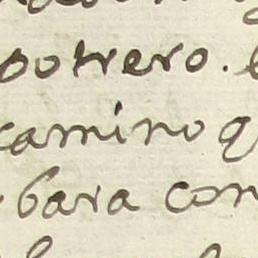 potrero.
camino q
bara con